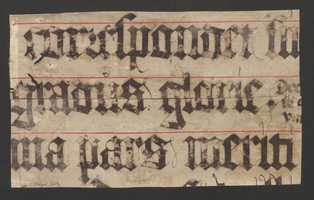 correspondet su
gradus glorie
ma pars meriti